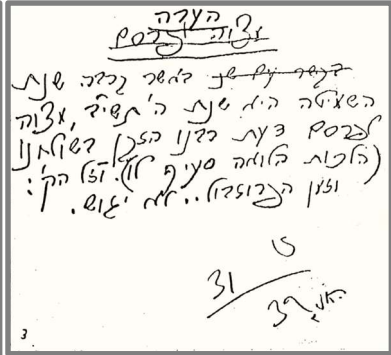 הערה
מצוה לפרסם
בקשר עם שנ באשר קרבה שנת
השמיטה היא שנת ה'תשי"ב, מצוה
לפרסם דעת רבנו הזקן בשולחנו
(הלכות הלואה סעיף לו). וזל הק':
וזמן הפרוזבול .. לא יגוש.
31
39
3